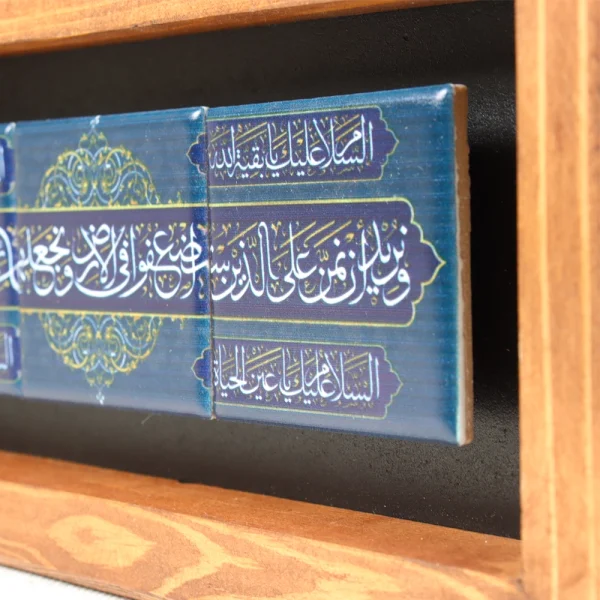 السلام عليك يا بقية الله
ونريد أن نمن على الذين استضعفوا في الأرض ونجعلهم
السلام عليك يا عين الحياة